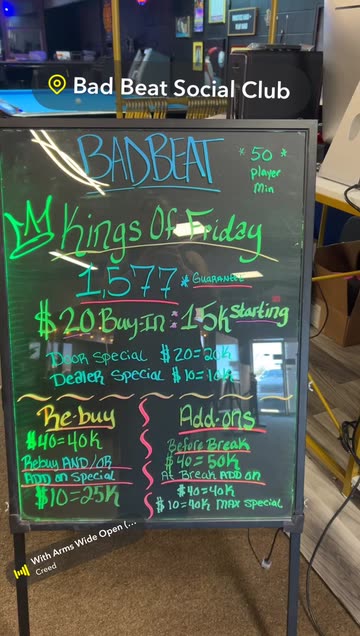 Bad Beat Social Club
BADBEAT
* 50 *
Player
Min
Kings Of Friday
1,577 * Guarantee
$20 Buy-In : 15K Starting
Door Special $20=20K
Dealer Special $10=10K
Re-buy
$40=40K
Rebuy AND/OR
ADD on Special
$10=25K
Add-ons
Before Break
$40=50K
At Break ADD on
$40=40K
$10=40K MAX Special
With Arms Wide Open (...
Creed